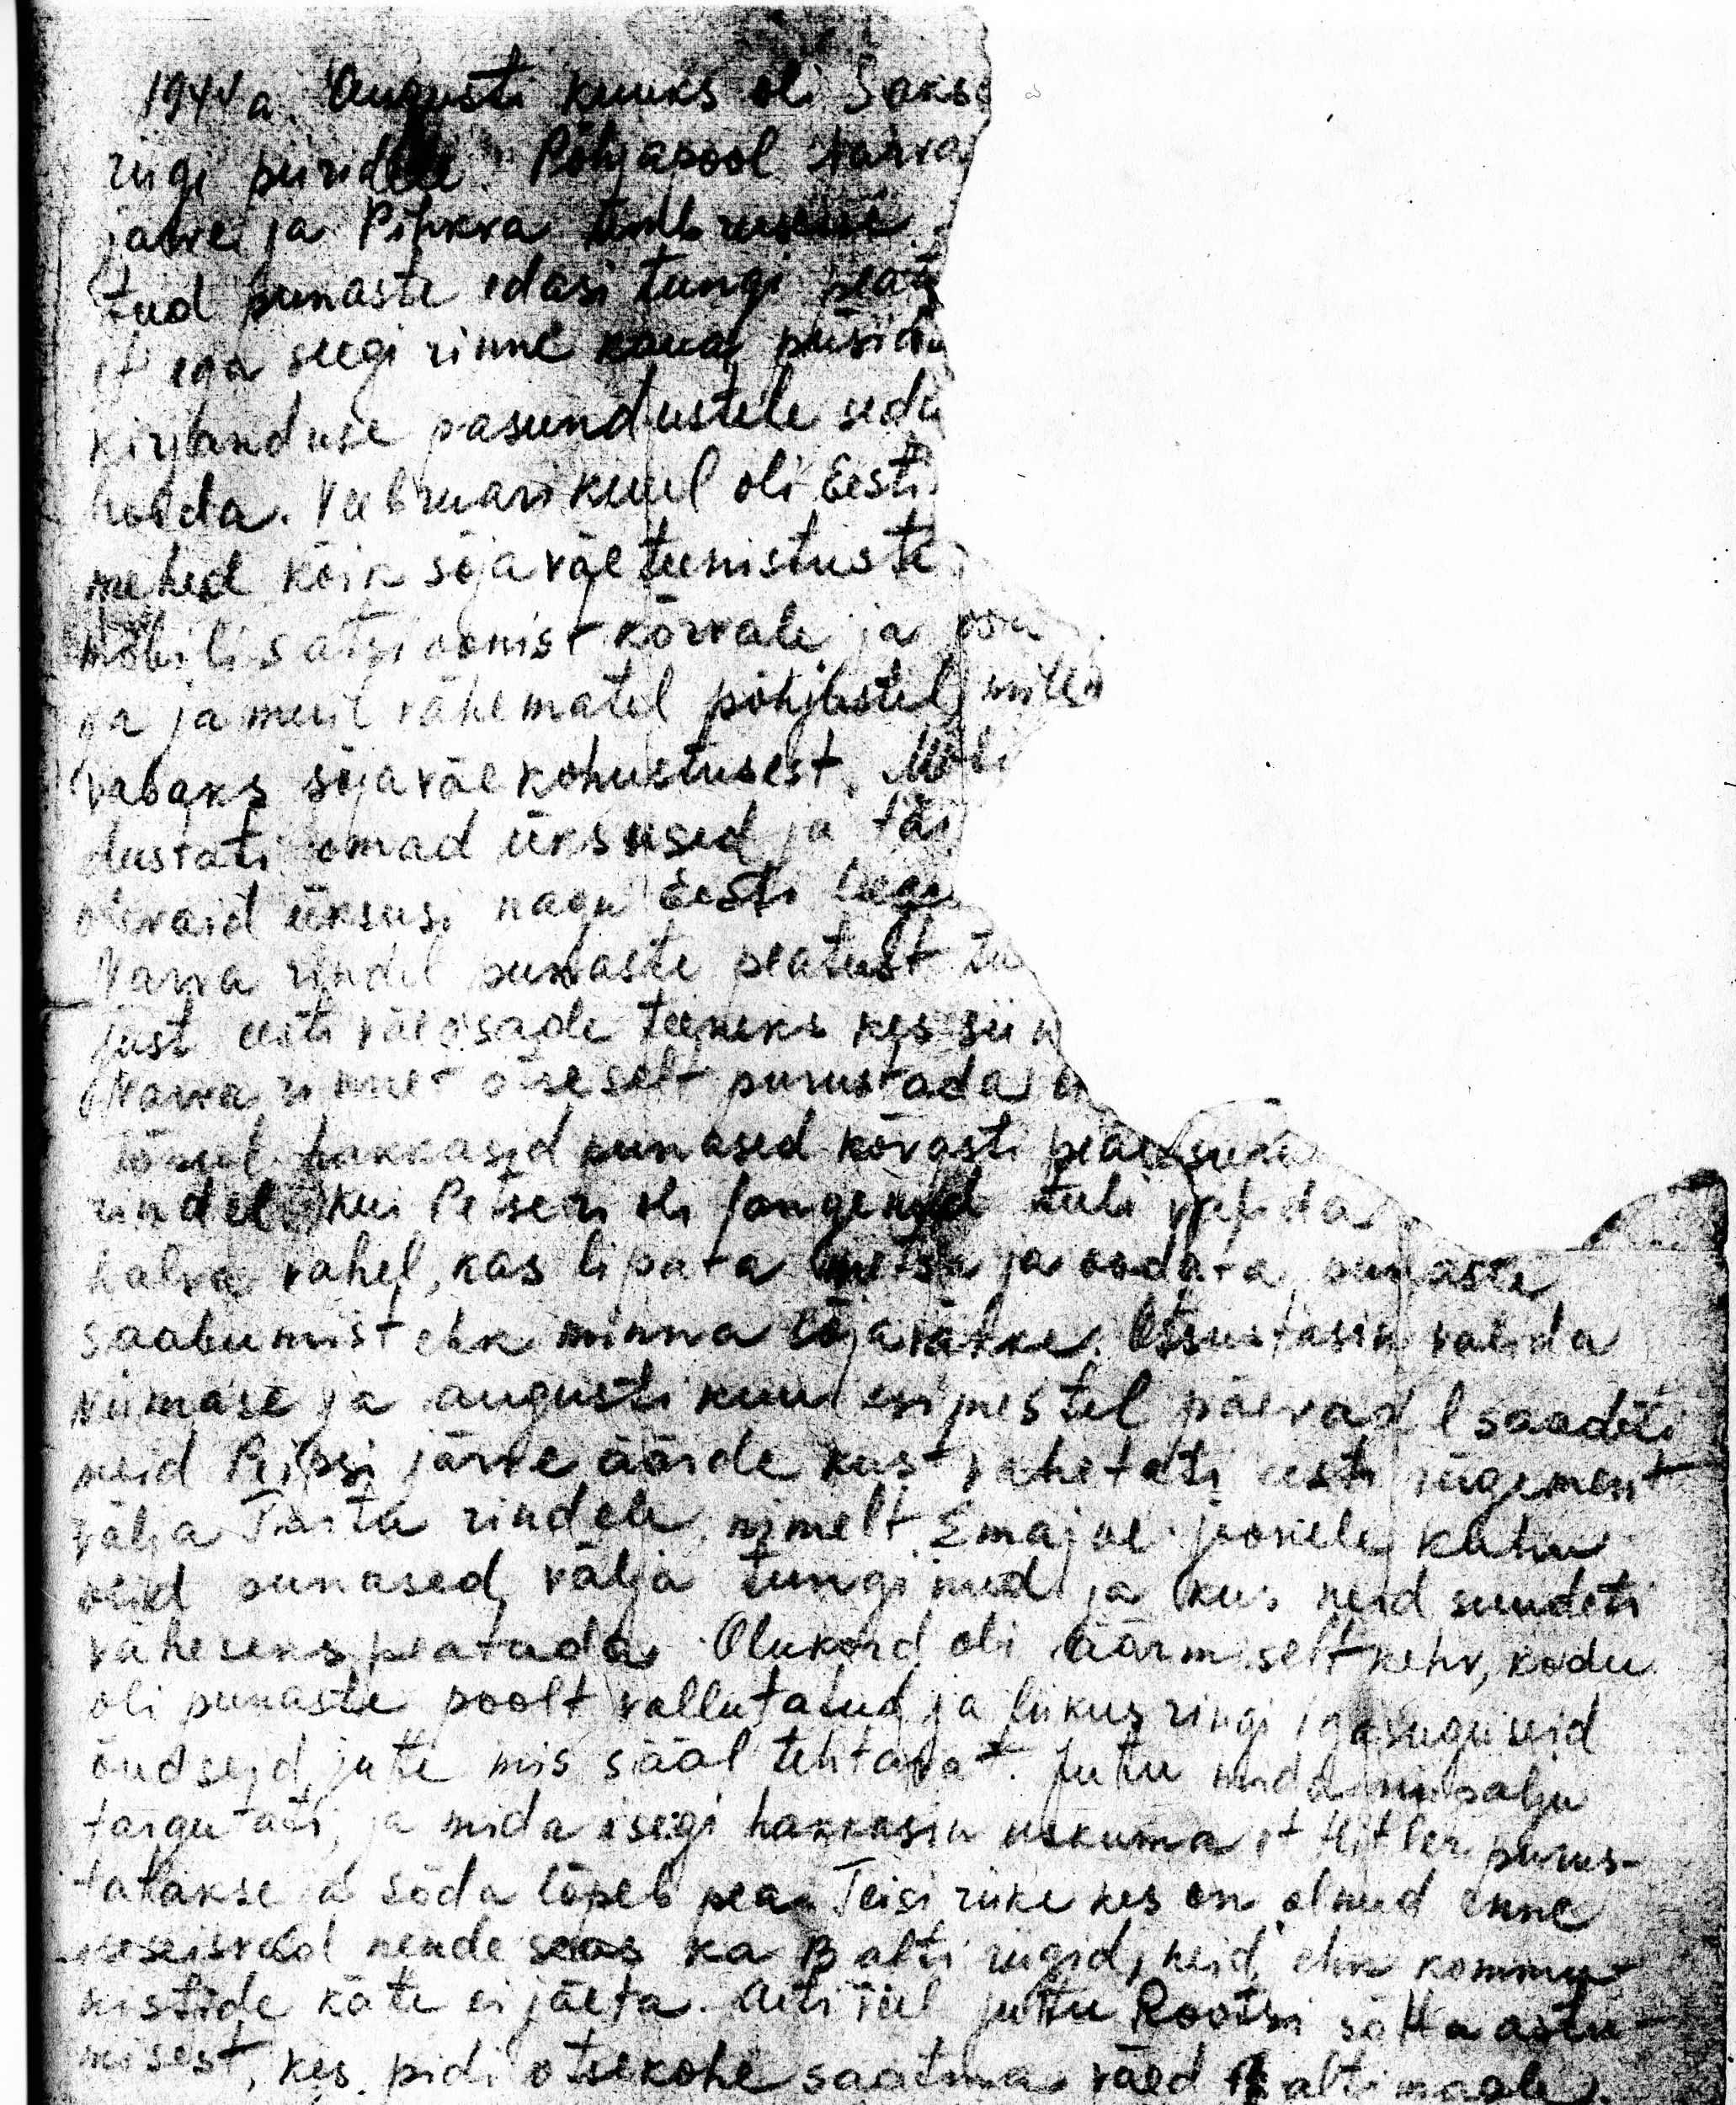 1944 a. Augusti kuuks oli Saksa
riigi piiridele. Põhjapool Narva
järve ja Pihkva ümbrusesse
tud punaste edasi tungi peat
et ega seegi rinne kaua püsida
kirjanduse pasundustele seda
hoida. Veebruari kuul oli Eesti
mehed kõik sõjaväeteenistuste
mobilisatsioonist kõrvale ja
ga ja muil vähematel põhjustel mille
vabaks sõjaväekohustusest. Mobi
dustati omad üksused ja täi
olevaid üksusi nagu Eesti Leegi
Narva rindel punaste peatust
just eesti väeosade teeneks kes siin
Narva rinnet õieselt purustada
Tõesel hakkasid punased kõvasti peale suru
rindel kui Petseri oli langenud tuli valida
halva vahel, kas lipata metsa ja oodata punaste
saabumist ehk minna sõjaväkke. Otsustasin valida
viimase ja augusti kuu esimestel päevad l saadeti
meid Peipsi järve äärde kust vahetati eesti rügement
välja Tartu rindele, nimelt Emajõe joonele kuhu
olid punased välja tunginud ja kus neid suudeti
väheseks peatada. Olukord oli äärmiselt kehv, kodu
oli punaste poolt vallutatud ja liikus ringi igasuguseid
õudseid jutte mis sääl tehtavat. Juttu mida nii palju
targutati, ja mida isegi hakkasin uskuma et Hitler purus-
tatakse ja sõda lõpeb pea. Teisi riike kes on olnud enne
iseseisvad nende seas ka Balti riigid, neid ehk kommu-
nistide kätte ei jäeta. Aeti veel juttu Rootsi sõtta astu-
misest, kes pidi otsekohe saatma väed Baltimaale.